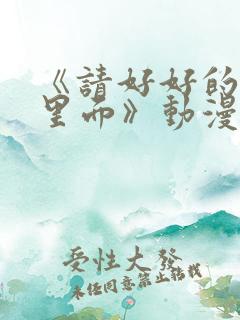 《請好好的
里面》動漫
受性大發
未任同意禁止轉載